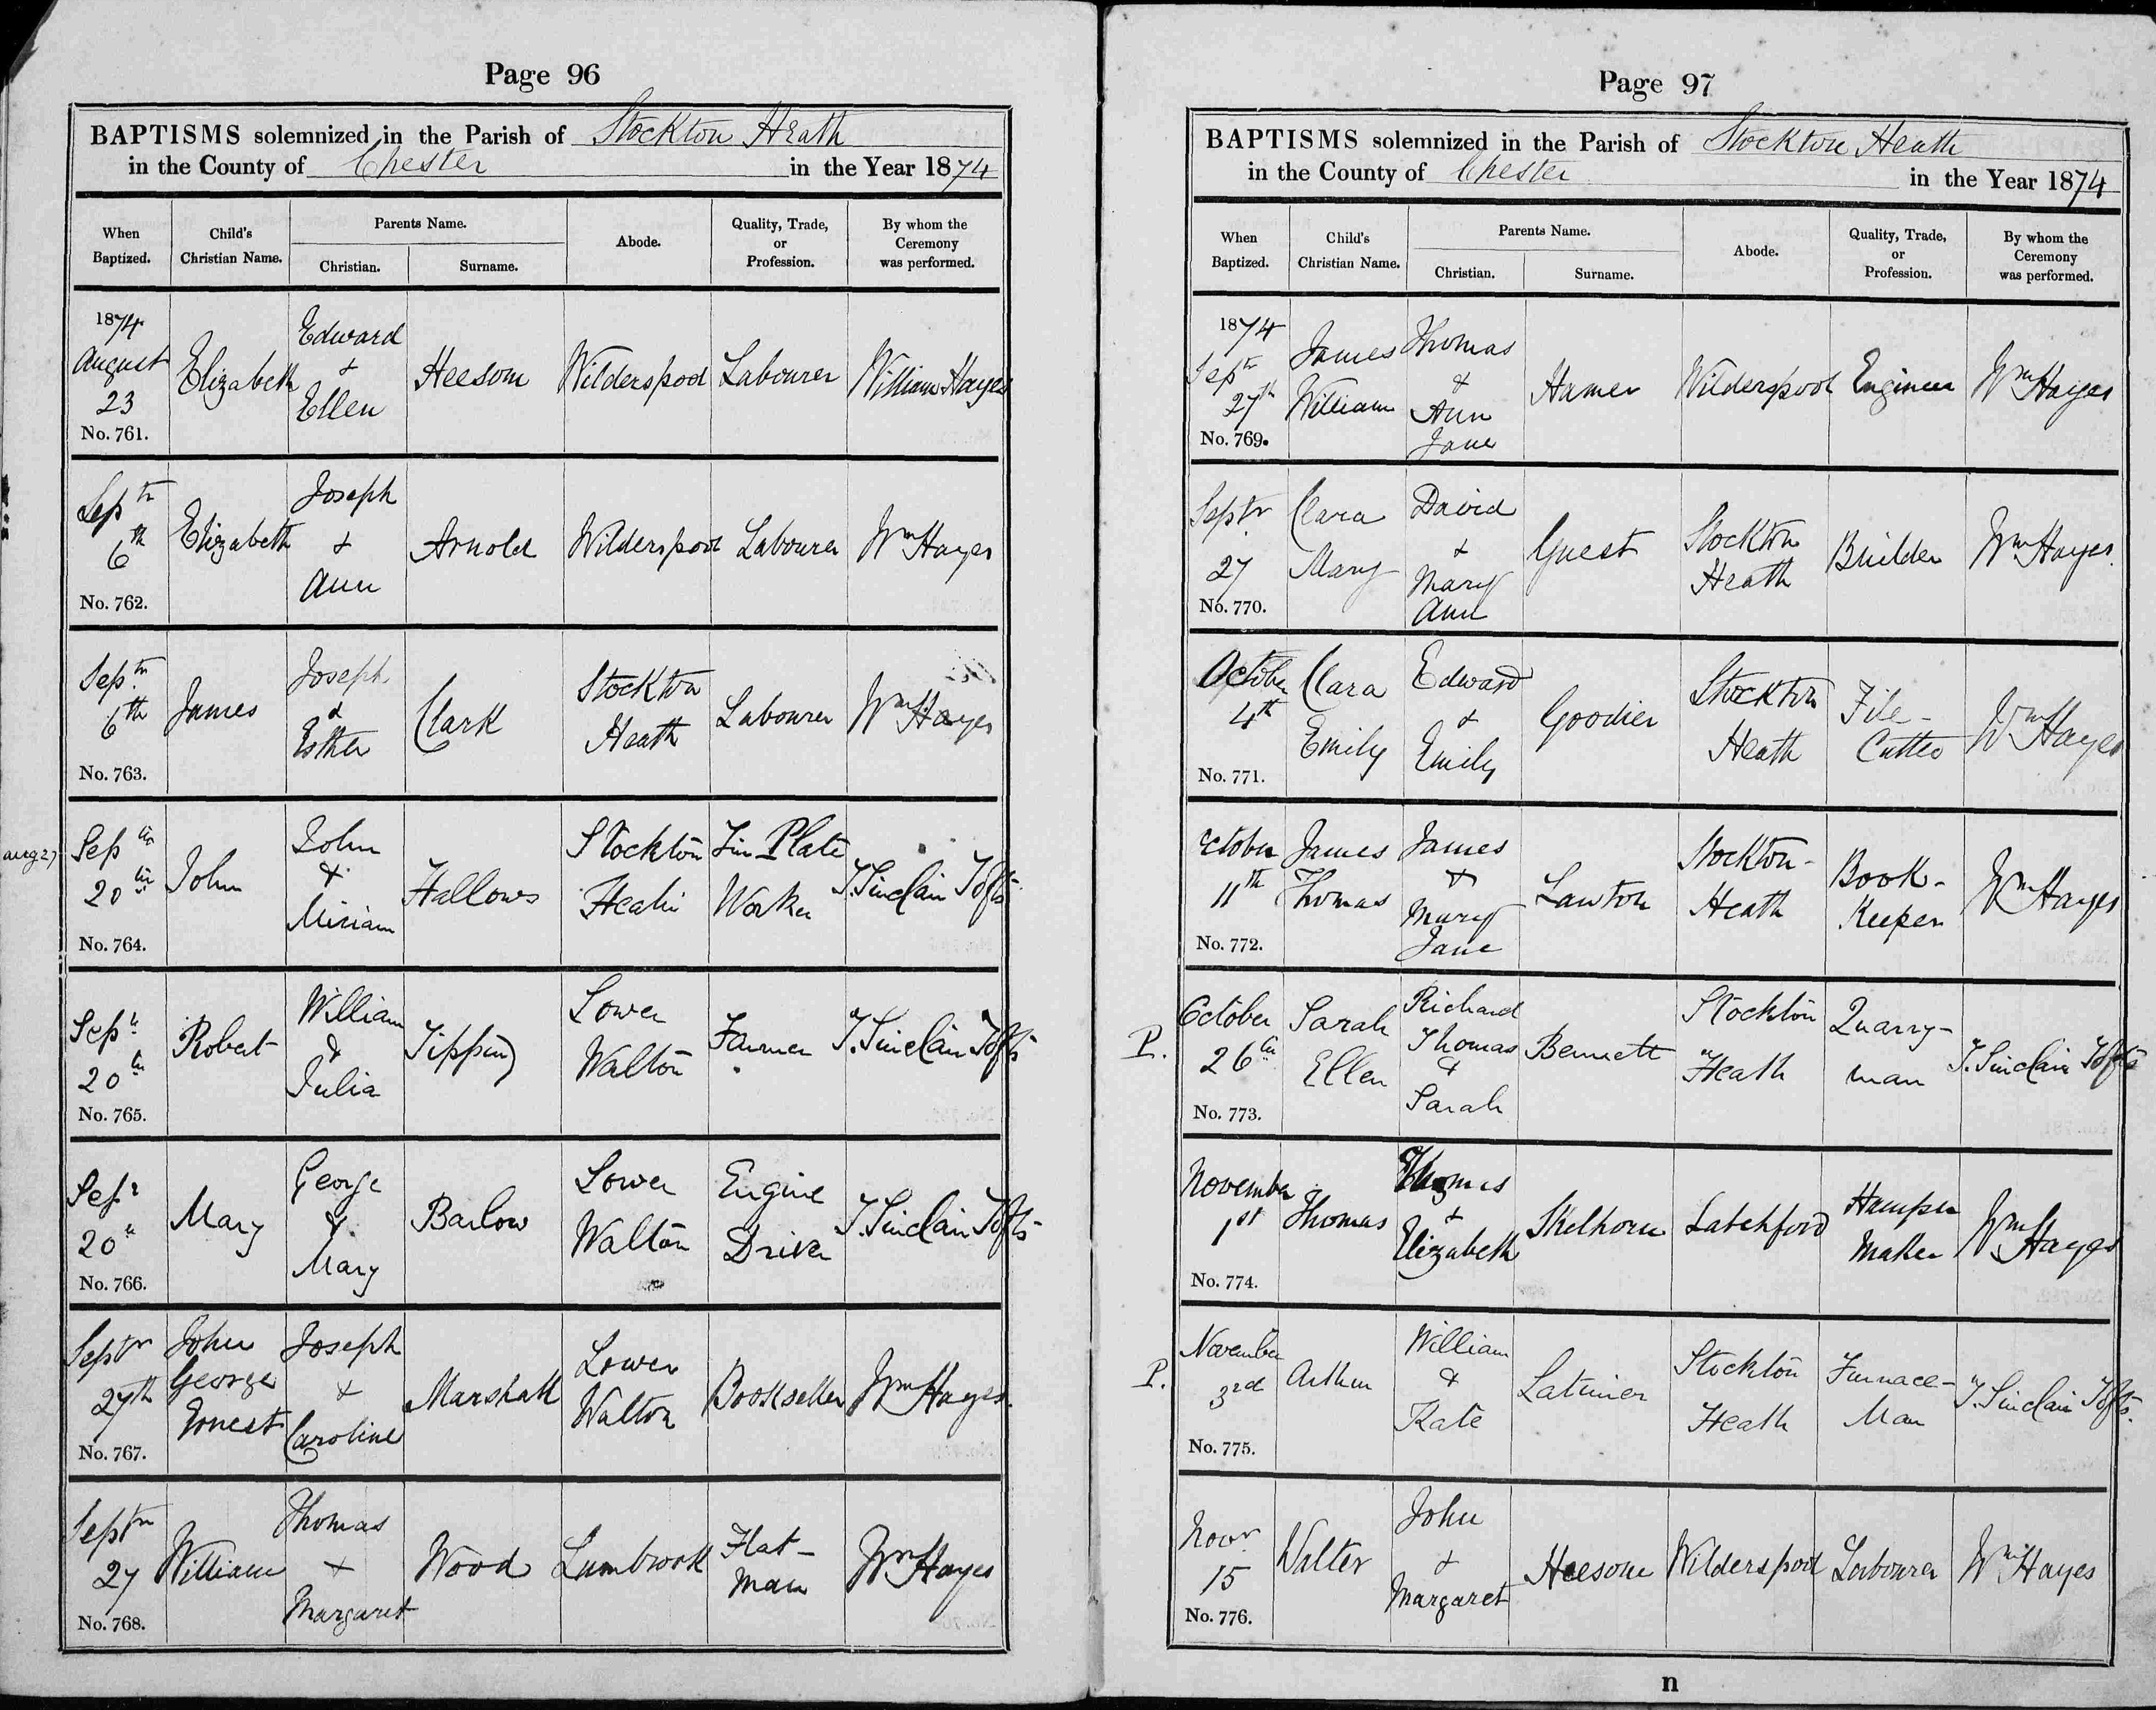 Page 96
BAPTISMS solemnized in the Parish of Stockton Heath
in the County of Chester in the Year 1874
When Baptized. Child's Christian Name. Parents Name. Christian. Surname. Abode. Quality, Trade, or Profession. By whom the Ceremony was performed.
1874 August 23 No. 761. Elizabeth Edward & Ellen Heesom Wilderspool Labourer William Hayes
Septr 6th No. 762. Elizabeth Joseph & Ann Arnold Wilderspool Labourer Wm Hayes
Septr 6th No. 763. James Joseph & Esther Clark Stockton Heath Labourer Wm Hayes
aug 27 Sepr 20th No. 764. John John & Miriam Hallows Stockton Heath Tin Plate Worker T. Sinclair Tofts
Sepr 20th No. 765. Robert William & Julia Tipping Lower Walton Farmer T. Sinclair Tofts
Sepr 20th No. 766. Mary George & Mary Barlow Lower Walton Engine Driver T. Sinclair Tofts
Septr 27th No. 767. John George Ernest Joseph & Caroline Marshall Lower Walton Bookseller Wm Hayes.
Septr 27 No. 768. William Thomas & Margaret Wood Lumbrook Flat-man Wm Hayes
Page 97
BAPTISMS solemnized in the Parish of Stockton Heath
in the County of Chester in the Year 1874
When Baptized. Child's Christian Name. Parents Name. Christian. Surname. Abode. Quality, Trade, or Profession. By whom the Ceremony was performed.
1874 Septr 27th No. 769. James William Thomas & Ann Jane Hamer Wilderspool Engineer Wm Hayes
Septr 27 No. 770. Clara Mary David & Mary Ann Guest Stockton Heath Builder Wm Hayes.
October 4th No. 771. Clara Emily Edward & Emily Goodier Stockton Heath File-Cutter Wm Hayes
October 11th No. 772. James Thomas James & Mary Jane Lawton Stockton-Heath Book-Keeper Wm Hayes
P. October 26th No. 773. Sarah Ellen Richard Thomas & Sarah Bennett Stockton Heath Quarry-man T. Sinclair Tofts
November 1st No. 774. Thomas Thomas & Elizabeth Skelhorn Latchford Hamper Maker Wm Hayes
P. November 3rd No. 775. Arthur William & Kate Latimer Stockton Heath Furnace-Man T. Sinclair Tofts.
Novr 15 No. 776. Walter John & Margaret Heesom Wilderspool Labourer Wm Hayes
n